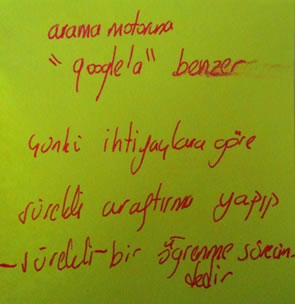 arama motoruna
"google'a" benzer
çünki ihtiyaçlara göre
sürekli araştırma yapıp
-sürekli-bir öğrenme sürecin-
dedir